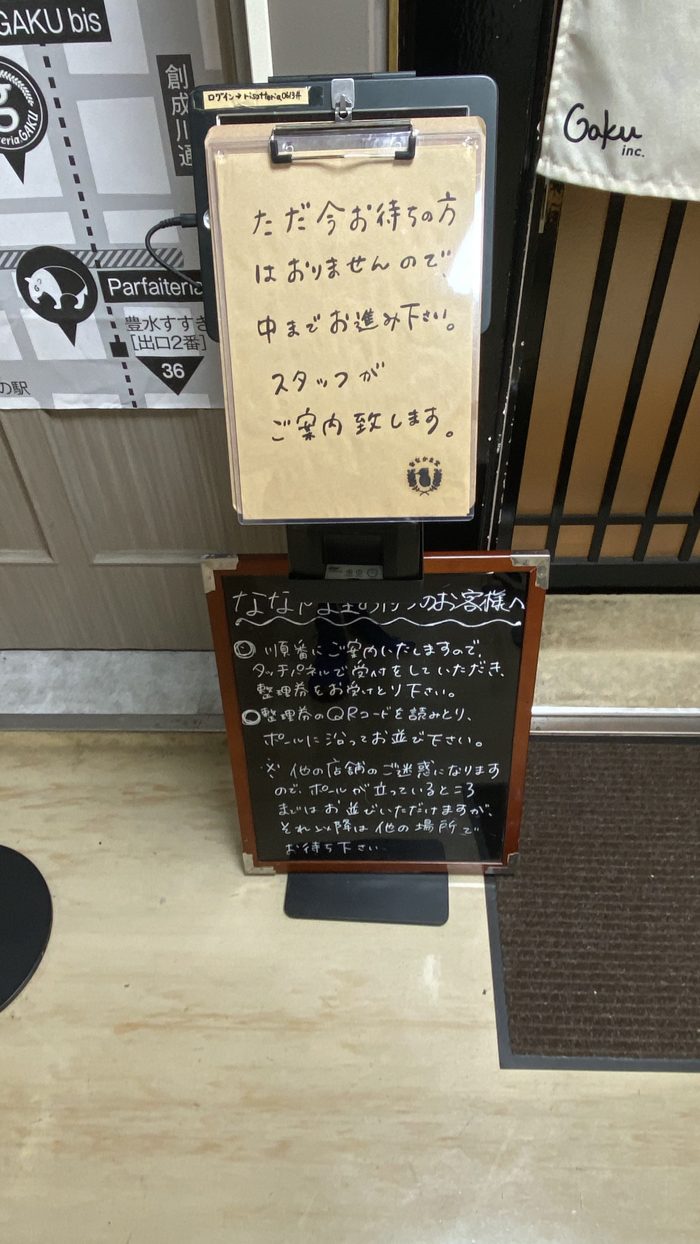 GAKU bis
創成川通
g
teria GAKU
Parfaiteria
豊水すすき
[出口2番]
36
の駅
Gaku
inc.
ただ今お待ちの方
はおりませんので、
中までお進み下さい。
スタッフが
ご案内致します。
のお客様へ
順番にご案内いたしますので、
タッチパネルで受付をしていただき、
整理券をお受けとり下さい。
整理券のQRコードを読みとり、
ポールに沿ってお並び下さい。
※他の店舗のご迷惑になります
ので、ポールが立っているところ
まではお並びいただけますが、
それ以降は他の場所で
お待ち下さい